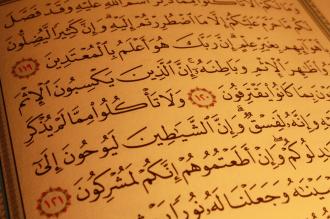 مِمَّا ذُكِرَ اسْمُ اللَّهِ عَلَيْهِ وَقَدْ فَصَّلَ
حَرَّمَ عَلَيْكُمْ إِلَّا مَا اضْطُرِرْتُمْ إِلَيْهِ وَإِنَّ كَثِيرًا لَّيُضِلُّونَ
بِأَهْوَآئِهِم بِغَيْرِ عِلْمٍ إِنَّ رَبَّكَ هُوَ أَعْلَمُ بِالْمُعْتَدِينَ ١١٩
ظَٰهِرَ الْإِثْمِ وَبَاطِنَهُۥٓ إِنَّ الَّذِينَ يَكْسِبُونَ الْإِثْمَ
بِمَا كَانُوا۟ يَقْتَرِفُونَ ١٢٠ وَلَا تَأْكُلُوا۟ مِمَّا لَمْ يُذْكَرِ
وَإِنَّهُۥ لَفِسْقٌ وَإِنَّ الشَّيَٰطِينَ لَيُوحُونَ إِلَىٰٓ
وَإِنْ أَطَعْتُمُوهُمْ إِنَّكُمْ لَمُشْرِكُونَ ١٢١
وَجَعَلْنَا لَهُۥ نُورًا